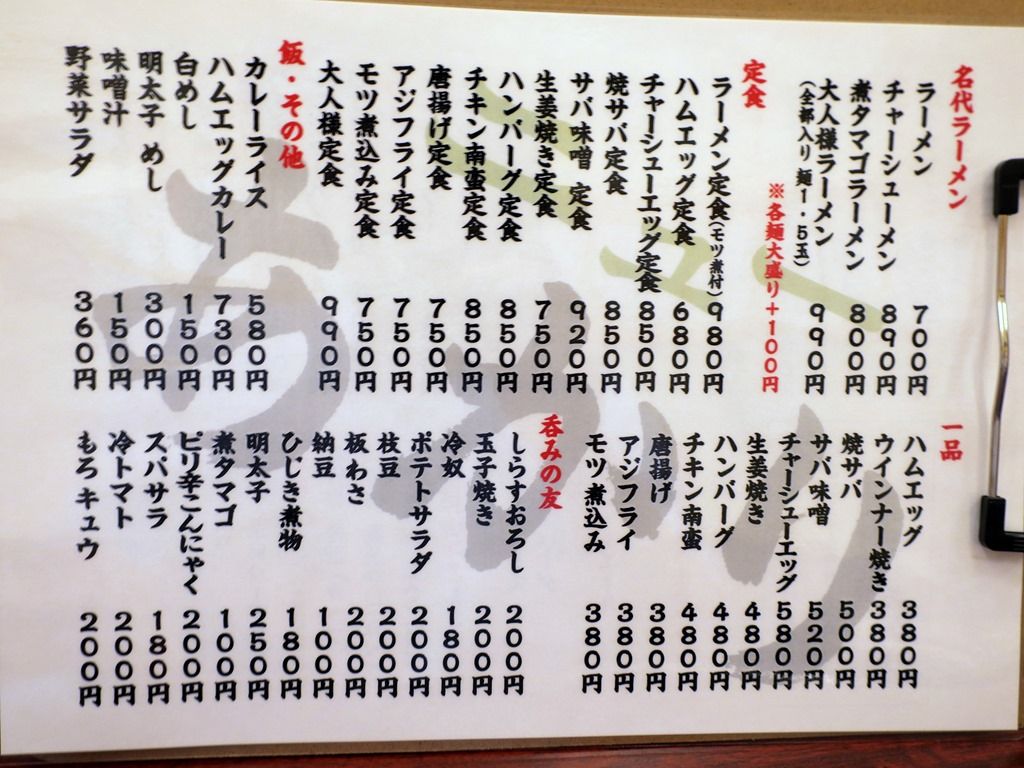 名代ラーメン
ラーメン 700円
チャーシューメン 890円
煮タマゴラーメン 800円
大人様ラーメン 990円
(全部入り 麺1.5玉)
※各麺大盛り+100円
定食
ラーメン定食(モツ煮付) 980円
ハムエッグ定食 680円
チャーシューエッグ定食 850円
焼サバ定食 850円
サバ味噌 定食 920円
生姜焼き定食 750円
ハンバーグ定食 850円
チキン南蛮定食 850円
唐揚げ定食 750円
アジフライ定食 750円
モツ煮込み定食 750円
大人様定食 990円
飯・その他
カレーライス 580円
ハムエッグカレー 730円
白めし 150円
明太子 めし 300円
味噌汁 150円
野菜サラダ 360円
一品
ハムエッグ 380円
ウインナー焼き 380円
焼サバ 500円
サバ味噌 520円
チャーシューエッグ 580円
生姜焼き 480円
ハンバーグ 480円
チキン南蛮 480円
唐揚げ 380円
アジフライ 380円
モツ煮込み 380円
呑みの友
しらすおろし 200円
玉子焼き 200円
冷奴 180円
ポテトサラダ 200円
枝豆 200円
板わさ 200円
納豆 100円
ひじき煮物 180円
明太子 250円
煮タマゴ 100円
ピリ辛こんにゃく 200円
スパサラ 180円
冷トマト 200円
もろキュウ 200円